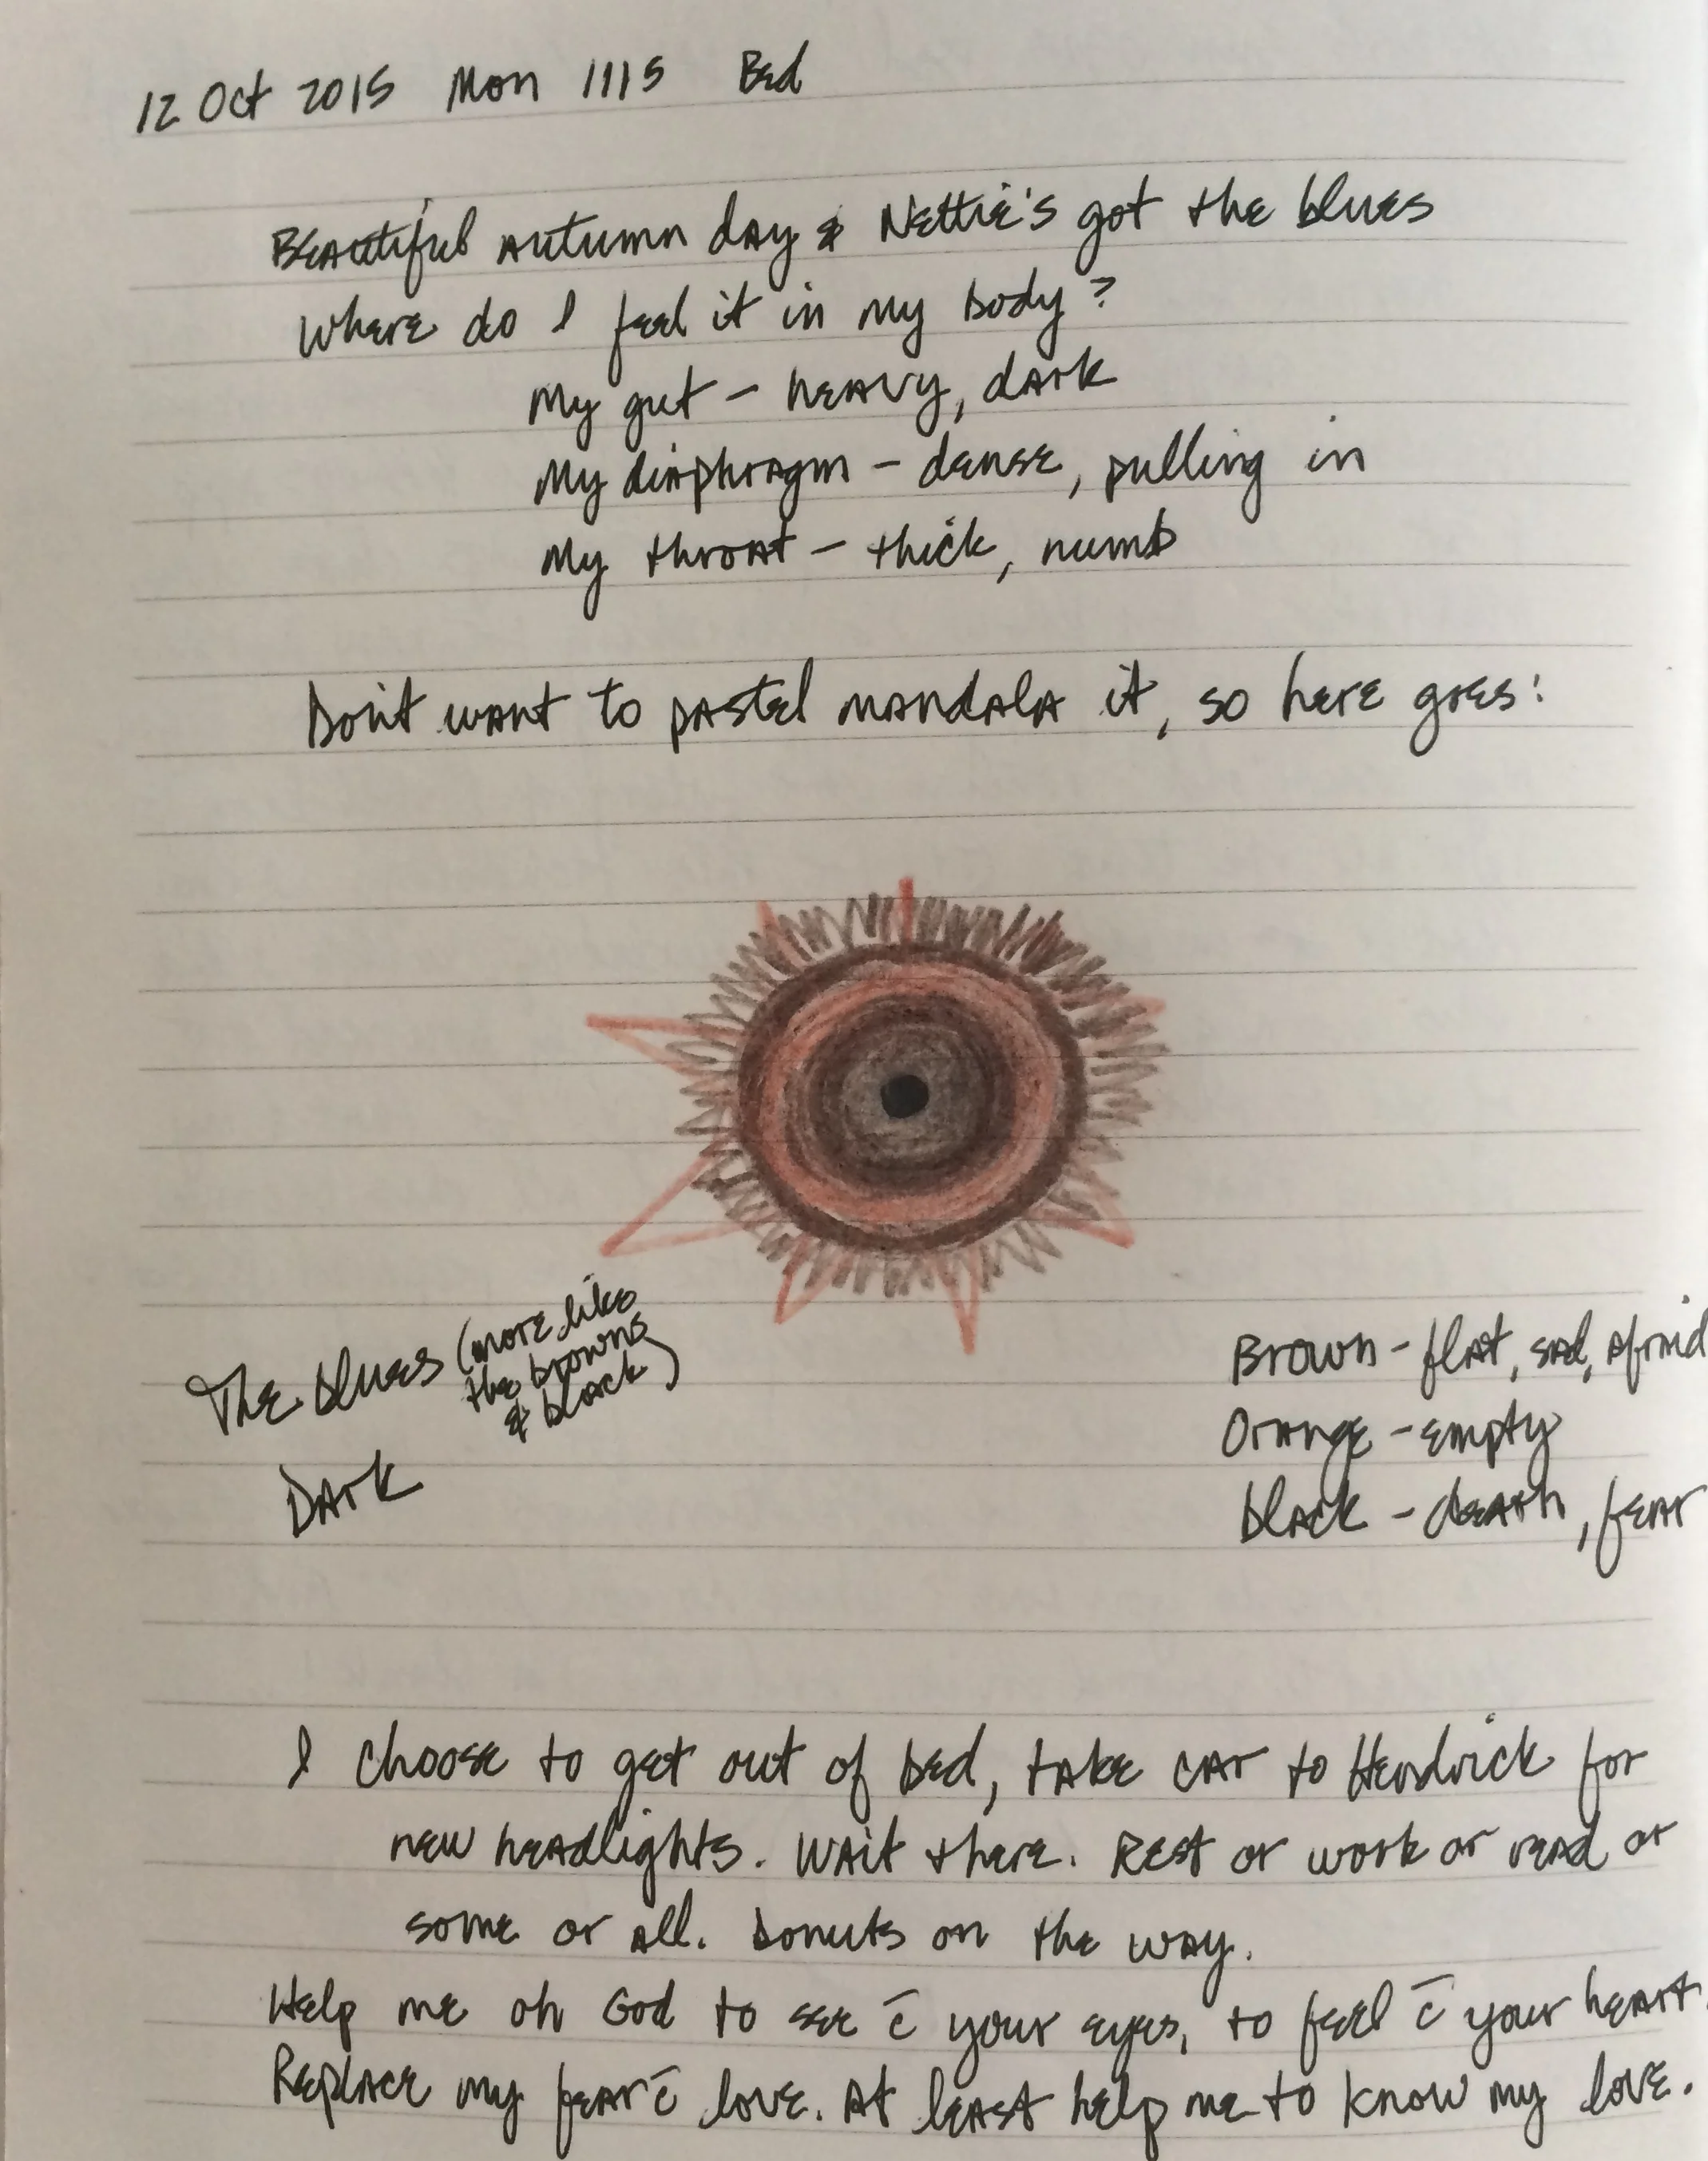 12 Oct 2015 Mon 1115 Bed
Beautiful autumn day & Nettie's got the blues
Where do I feel it in my body?
My gut – heavy, dark
My diaphragm – dense, pulling in
My throat – thick, numb
Don't want to pastel mandala it, so here goes:
The blues (more like
the browns
& black)
Dark
Brown – flat, sad, afraid
Orange – empty
black – death, fear
I choose to get out of bed, take car to Hendrick for
new headlights. Wait there. Rest or work or read or
some or all. Donuts on the way.
Help me oh God to see c̄ your eyes, to feel c̄ your heart.
Replace my fear c̄ love. At least help me to know my love.